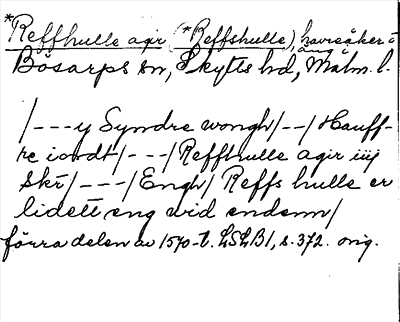 *Reffhulle agir (*Reffshulle), havreåker o äng i
Bösarps sn, Skytts hd, Malm. l.
/---y Syndre wongh/--/Hauff-
re iordt/---/Reffhulle agir iiij
skr/---/Engh/Reffs hulle er
lidett eng wid endenn/
förra delen av 1570-t. LSLB1, s. 372. orig.